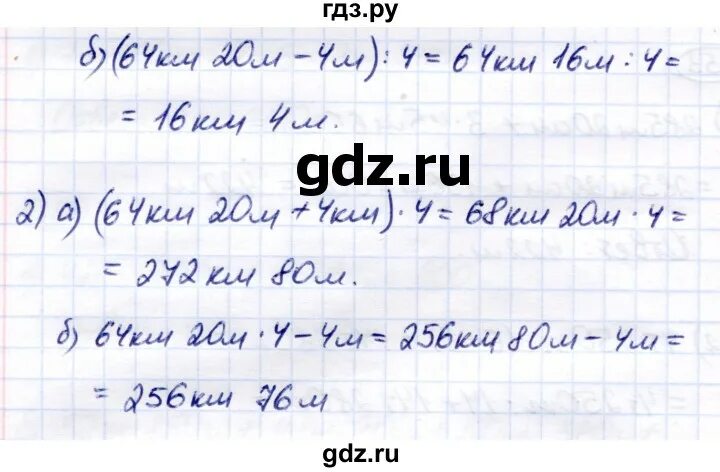 гдз.ру
б) (64км 20м - 4м) : 4 = 64км 16м : 4 =
= 16км 4м.
gdz.ru
2) а) (64км 20м + 4км) · 4 = 68км 20м · 4 =
= 272км 80м.
б) 64км 20м · 4 - 4м = 256км 80м - 4м =
= 256км 76м
gdz.ru